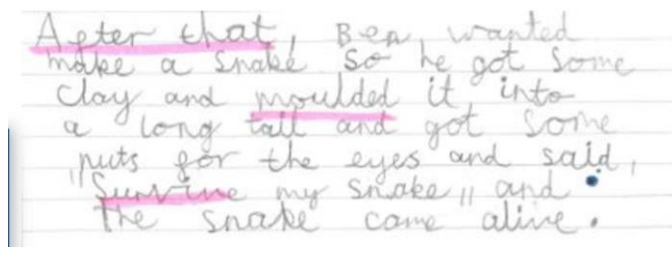 After that, Ben wanted
make a snake so he got some
clay and moulded it into
a long tall and got some
nuts for the eyes and said,
"Survive my snake" and
the snake came alive.